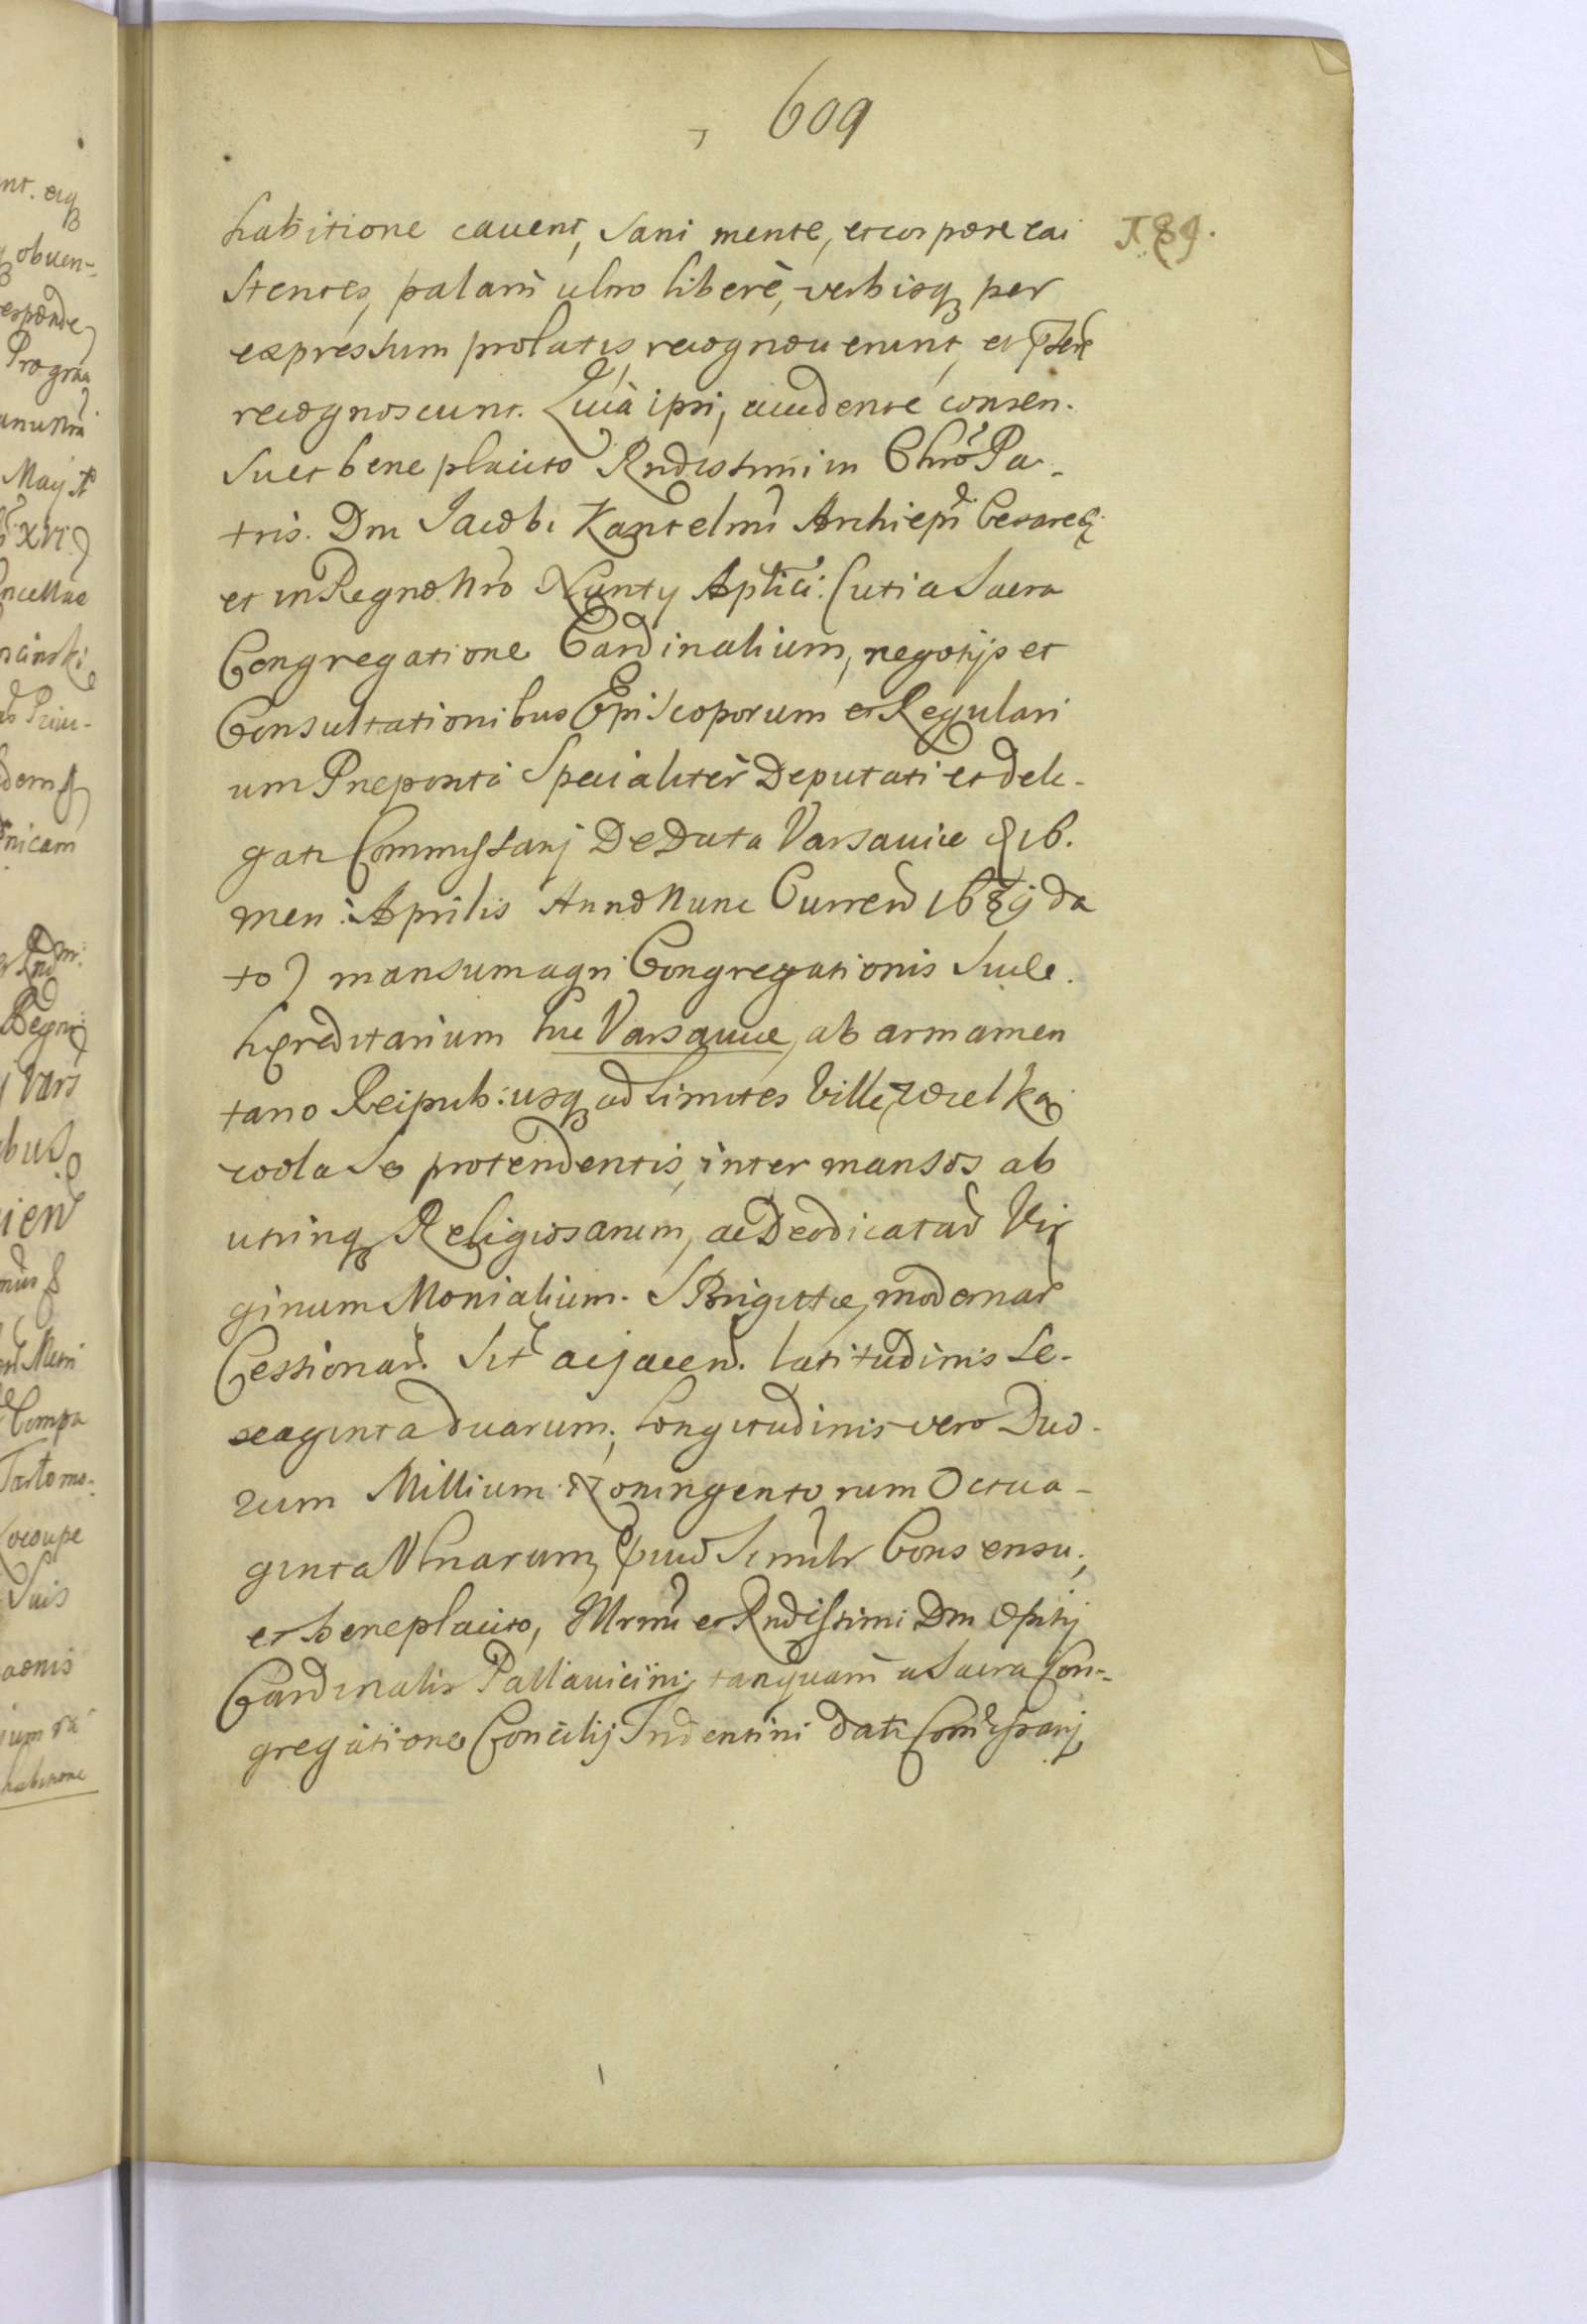 609
habitione cauent, Sani mente, et corpore exi
T. 89.
Stentes, palam ultro liberè, verbisq per
expressum prolatis, recognouerunt, et
recognoscunt. Quià ipsi, accedente consen-
su et bene placito Rndissimi in Chro Pa-
tris. Dni Jacobi Kantelmi Archiepi Cesareę
et in Regno Nro Nunty Aplici: (uti a Sacra
Congregatione Cardinalium, negotijs et
Consultationibus Episcoporum et Regulari
um Prepositâ Specialitèr Deputati et dele-
gati Commissarij De Data Varsauiæ 16.
men: Aprilis Anno Nunc Curren 1689 da
to) mansum agri Congregationis Suæ
hęreditarium hic Varsauiæ, ab armamen
tario Reipub: usq ad Limites Villę Wielka
wola Se protendentis, inter mansos ab
utrinq Religiosarum, ac Deo dicatar Vir
ginum Monialium. S Brigittæ, modernar
Cessionar. Sit ac jacen. latitudinis Se-
xaginta duarum; Longitudinis vero Duo-
rum Millium Noningentorum Octua-
ginta Vlnarum, Simulr Consensu;
et beneplacito, Illrmi et Rndissimi Dni Opitij
Cardinalis Pallauicini, tanquam a Sacra Con-
gregatione Concilij Tridentini dati Commissarij